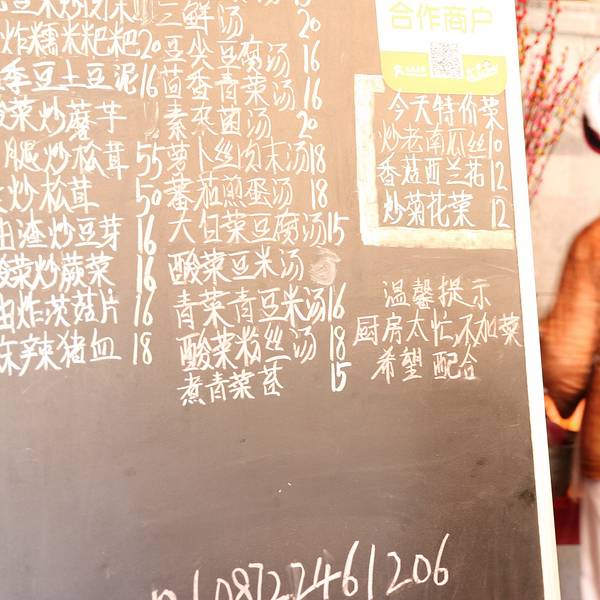 三鲜汤 20
炸糯米粑粑 20
豆尖豆腐汤 16
季豆土豆泥 16
茴香青菜汤 16
酸菜炒蘑芋
素杂菌汤 20
腿炒松茸 55
萝卜丝肉末汤 18
炒松茸 50
蕃茄煎蛋汤 18
油渣炒豆芽 16
大白菜豆腐汤 15
酸菜炒蕨菜 16
酸菜豆米汤
油炸茨菇片 16
青菜青豆米汤 16
麻辣猪血 18
酸菜粉丝汤 18
煮青菜苔 15
合作商户
今天特价菜
炒老南瓜丝 10
香菇西兰花 12
炒菊花菜 12
温馨提示
厨房太忙,不加菜
希望配合
08722461206